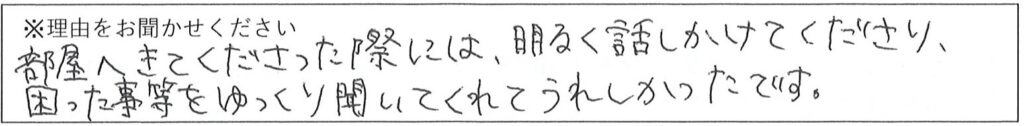 ※理由をお聞かせください
部屋へきてくださった際には、明るく話しかけてくださり、
困った事等をゆっくり聞いてくれてうれしかったです。